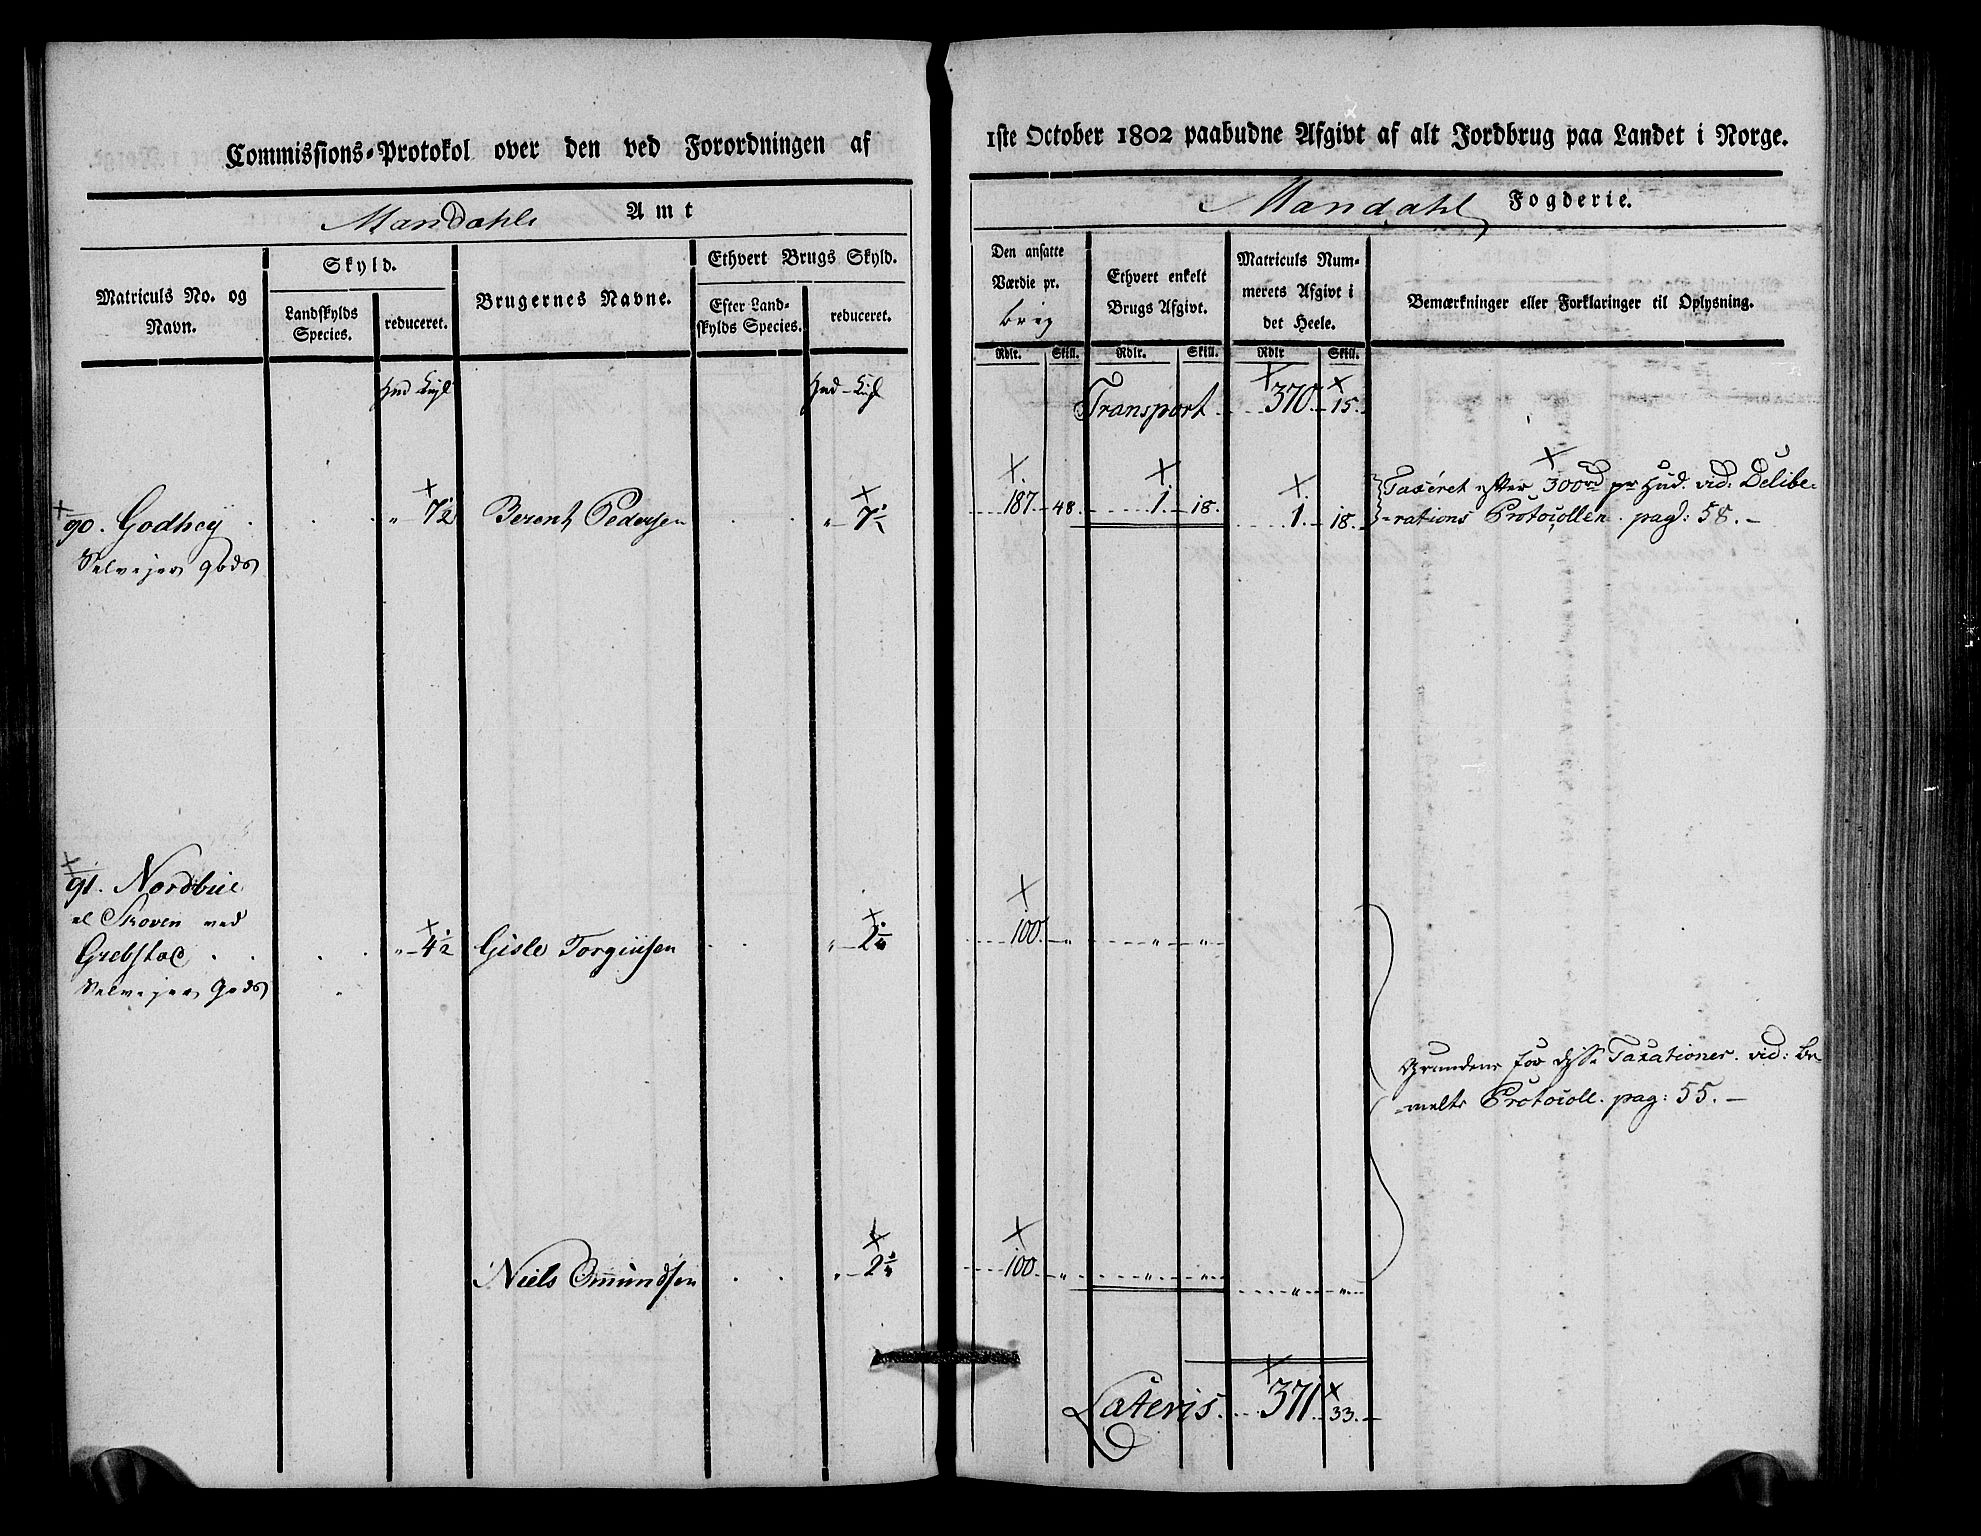 Commissions-Protokol over den ved Forordningen af
Mandahls Amt
Matriculs No. og Navn.
Skyld.
Landskylds Species.
reduceret.
Brugernes Navne.
Ethvert Brugs Skyld.
Efter Landskylds Species.
reduceret.
Hud
Hud
90. Godhey . . . „ 7½ Berent Pedersen . . „ 7½
Selvejer Gods
91. Nordbüe
el Skoven ved
Grebstad . . . . „ 4½ Gisle Torgiusen . . „ 2¼
Selvejer Gods
Niels Omundsen . . „ 2¼
1ste October 1802 paabudne Afgivt af alt Jordbrug paa Landet i Norge.
Mandahl Fogderie.
Den ansatte Værdie pr.
Ethvert enkelt Brugs Afgivt.
Matriculs Nummerets Afgivt i det Heele.
Bemærkninger eller Forklaringer til Oplysning.
Rdlr. Skill. Rdlr. Skill. Rdlr Skill.
Transport 370 15
187 48 1. 18. 1. 18.
Taxeret efter 300rd pr Hud. vid: Delibe-
-rations Protocollen. pag: 58.
100. „ „ „
Grundene for disse Taxationer. vid: be
-melte Protocoll. pag: 55.
100 „ „ „ „ „
Lateris 371 33.